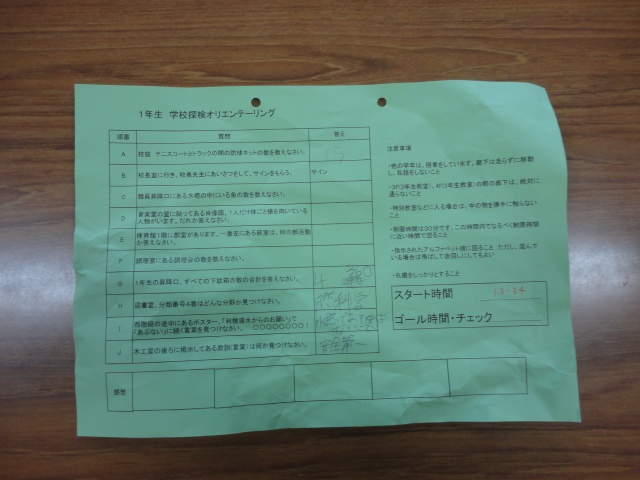 1年生 学校探検オリエンテーリング
順番 質問 答え
A 校庭 テニスコートとトラックの間の防球ネットの数を数えなさい。 15
B 校長室に行き、校長先生にあいさつをして、サインをもらう。 サイン
C 職員昇降口にある水槽の中にいる魚の数を数えなさい。
D 音楽室の壁に貼ってある肖像画、1人だけ体ごと横を向いている
人物がいます。だれか答えなさい。
E 体育館1階に部室があります。一番左にある部室は、何の部活動
か答えなさい。
F 調理室にある調理台の数を数えなさい。
G 1年生の昇降口、すべての下駄箱の数の合計を答えなさい。
H 図書室、分類番号4番はどんな分野か見つけなさい。
I 西階段の途中にあるポスター、「利根進水からのお願い」で
「あぶない!」に続く言葉を見つけなさい。 ○○○○○○○○!
J 木工室の後ろに掲示してある教訓(言葉)は何か見つけなさい。 安全第一
感想
注意事項
・他の学年は、授業をしています。廊下は走らずに移動
し、私語をしないこと
・3F(2年生教室)、4F(3年生教室)の前の廊下は、絶対に
通らないこと
・特別教室などに入る場合は、中の物を勝手に触らない
こと
・制限時間は30分です。この時間内でなるべく制限時間
に近い時間で回ること
・指示されたアルファベット順に回ること ただし、混んで
いる場合は飛ばして後回しにしてもよい
・礼儀をしっかりとすること
スタート時間 13:34
ゴール時間・チェック